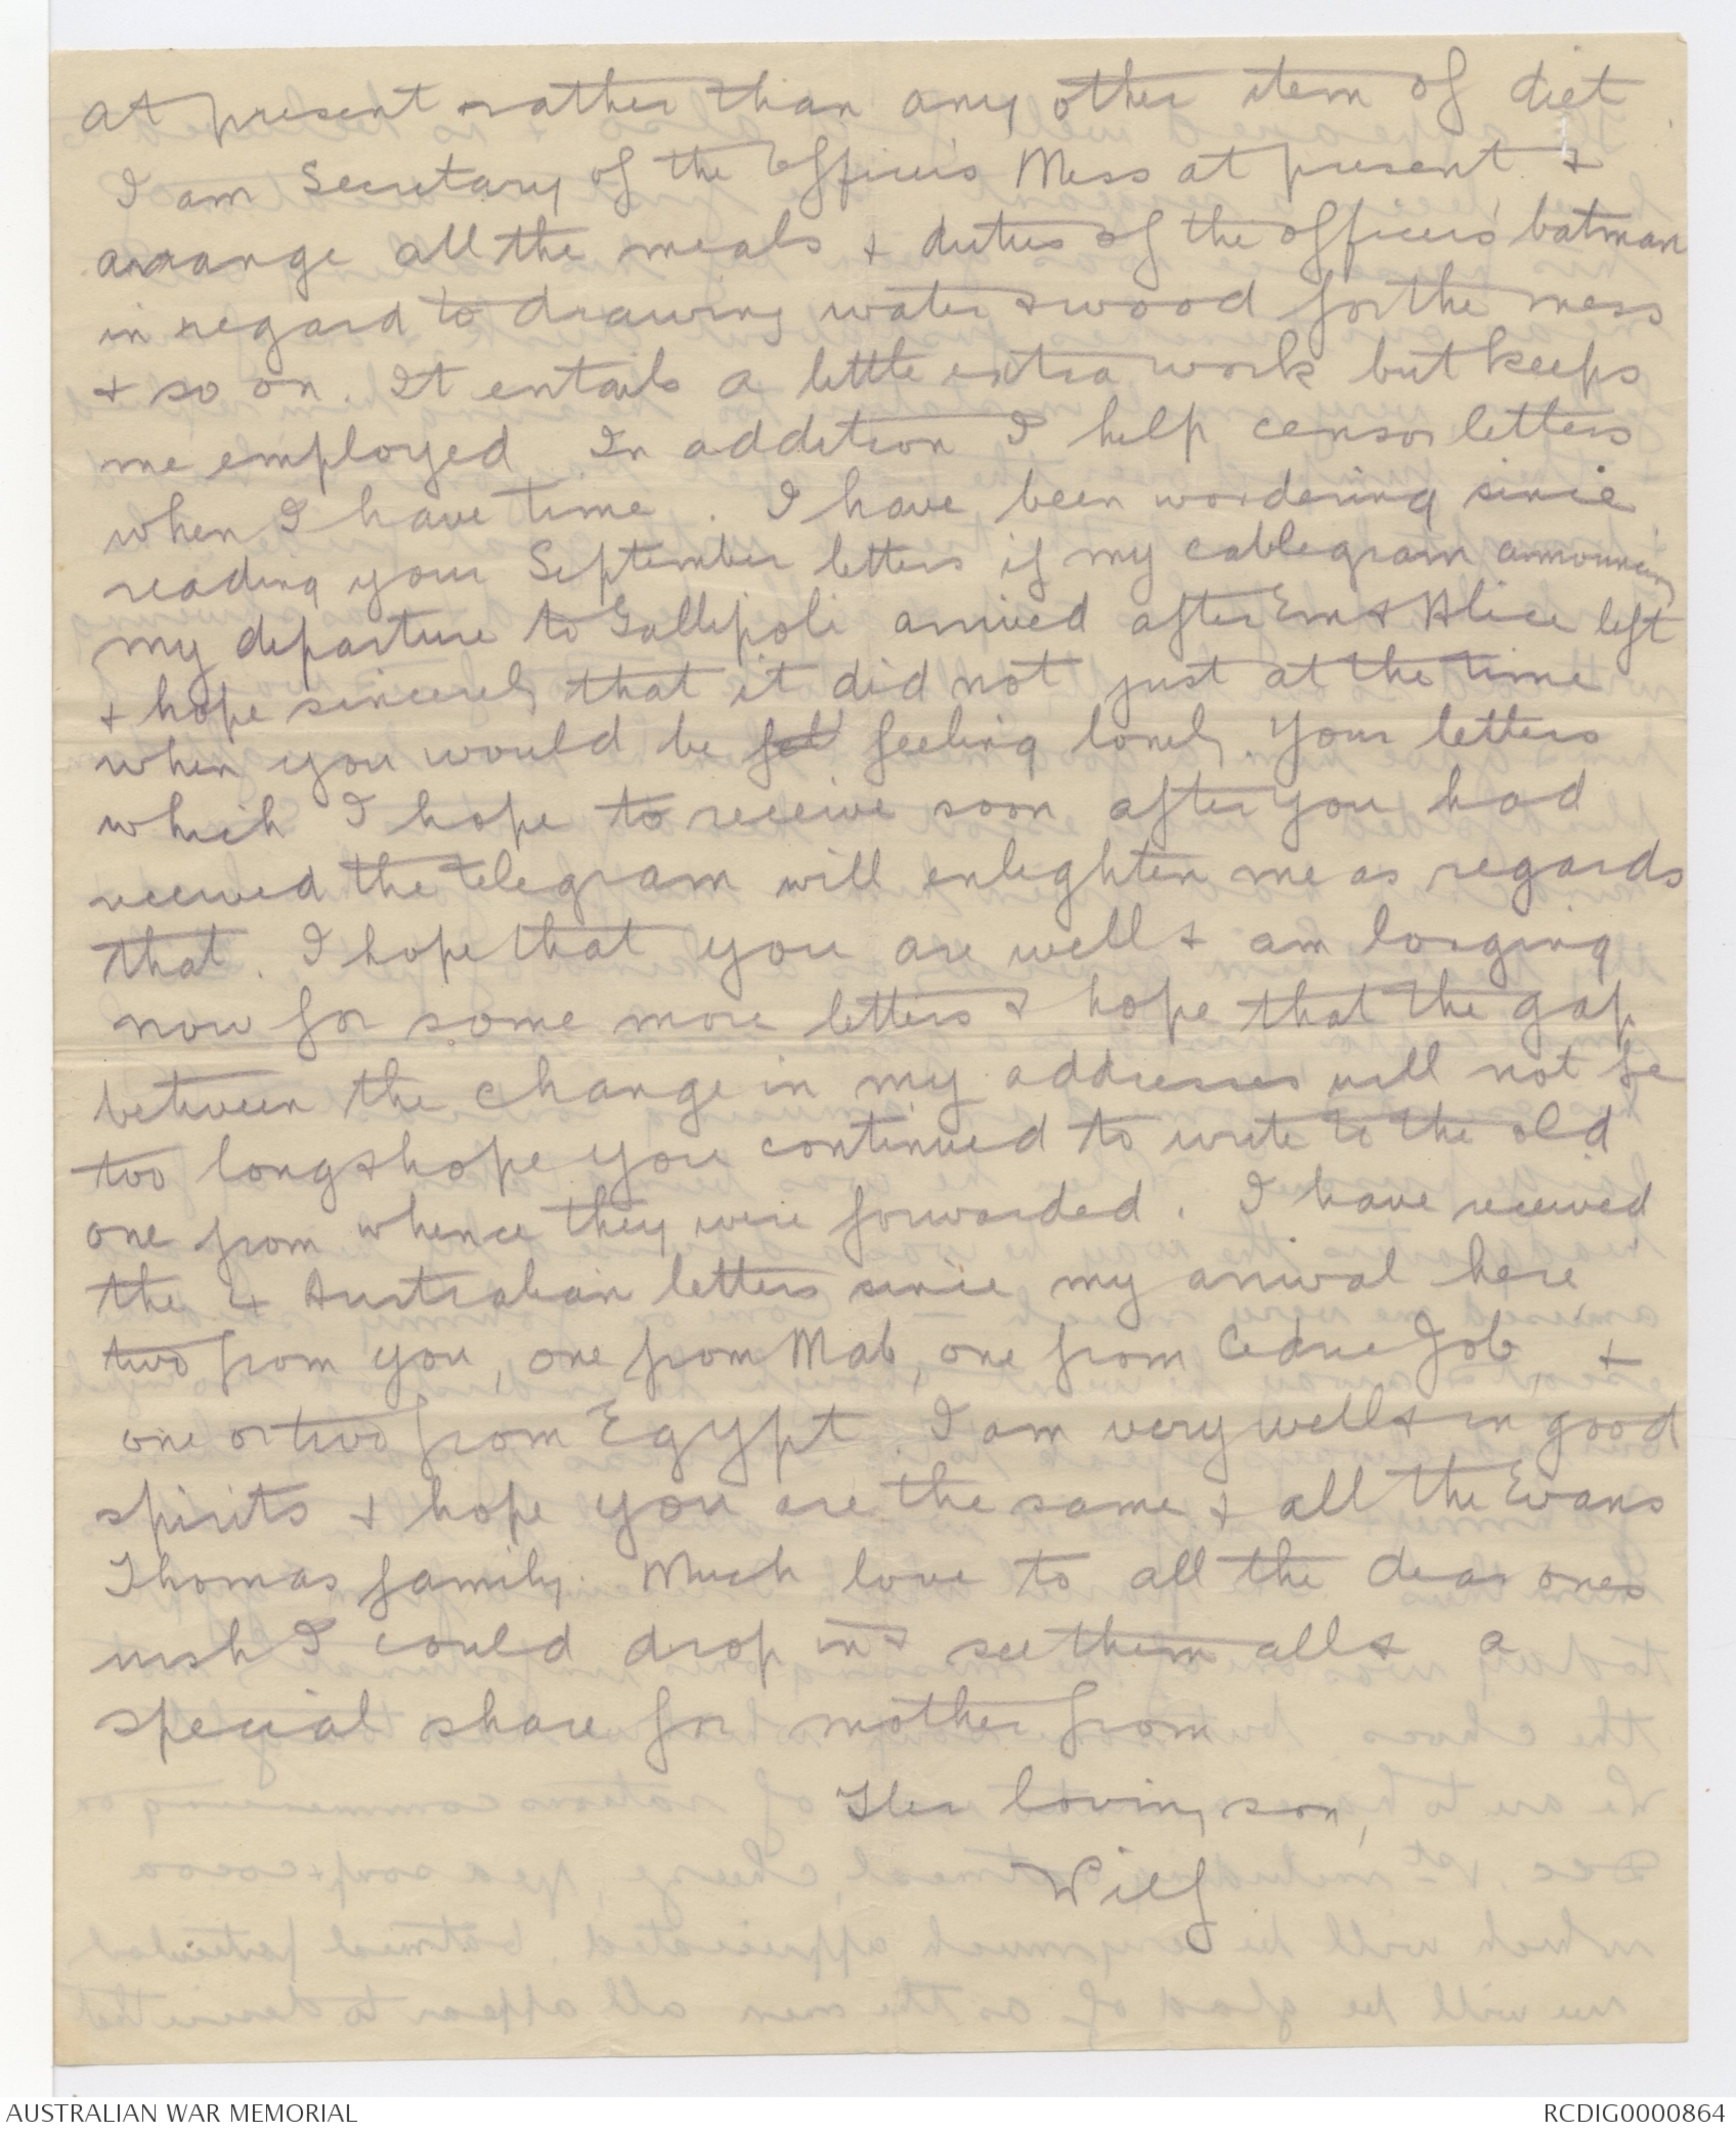 at present rather than any other item of diet
I am Secretary of the Officers Mess at present &
arrange all the meals & duties of the officers' batman
in regard to drawing water & wood for the mess
& so on. It entails a little extra work but keeps
me employed In addition I help censor letters
when I have time. I have been wondering since
reading your September letters if my cablegram announcing
my departure to Gallipoli arrived after Em & Alice left
& hope sincerely that it did not just at the time
when you would be feeling lonely. Your letters
which I hope to receive soon after you had
received the telegram will enlighten me as regards
that. I hope that you are well & am longing
now for some more letters & hope that the gap
between the change in my addresses will not be
too long & hope you continued to write to the old
one from whence they were forwarded. I have received
the 4 Australian letters since my arrival here
two from you, one from Mab, one from Cedric Job, &
one or two from Egypt. I am very well & in good
spirits & hope you are the same & all the Evans
Thomas family. Much love to all the dear ones
wish I could drop in & see them all & a
special share for mother from
Her loving son,
Wilf
AUSTRALIAN WAR MEMORIAL
RCDIG0000864